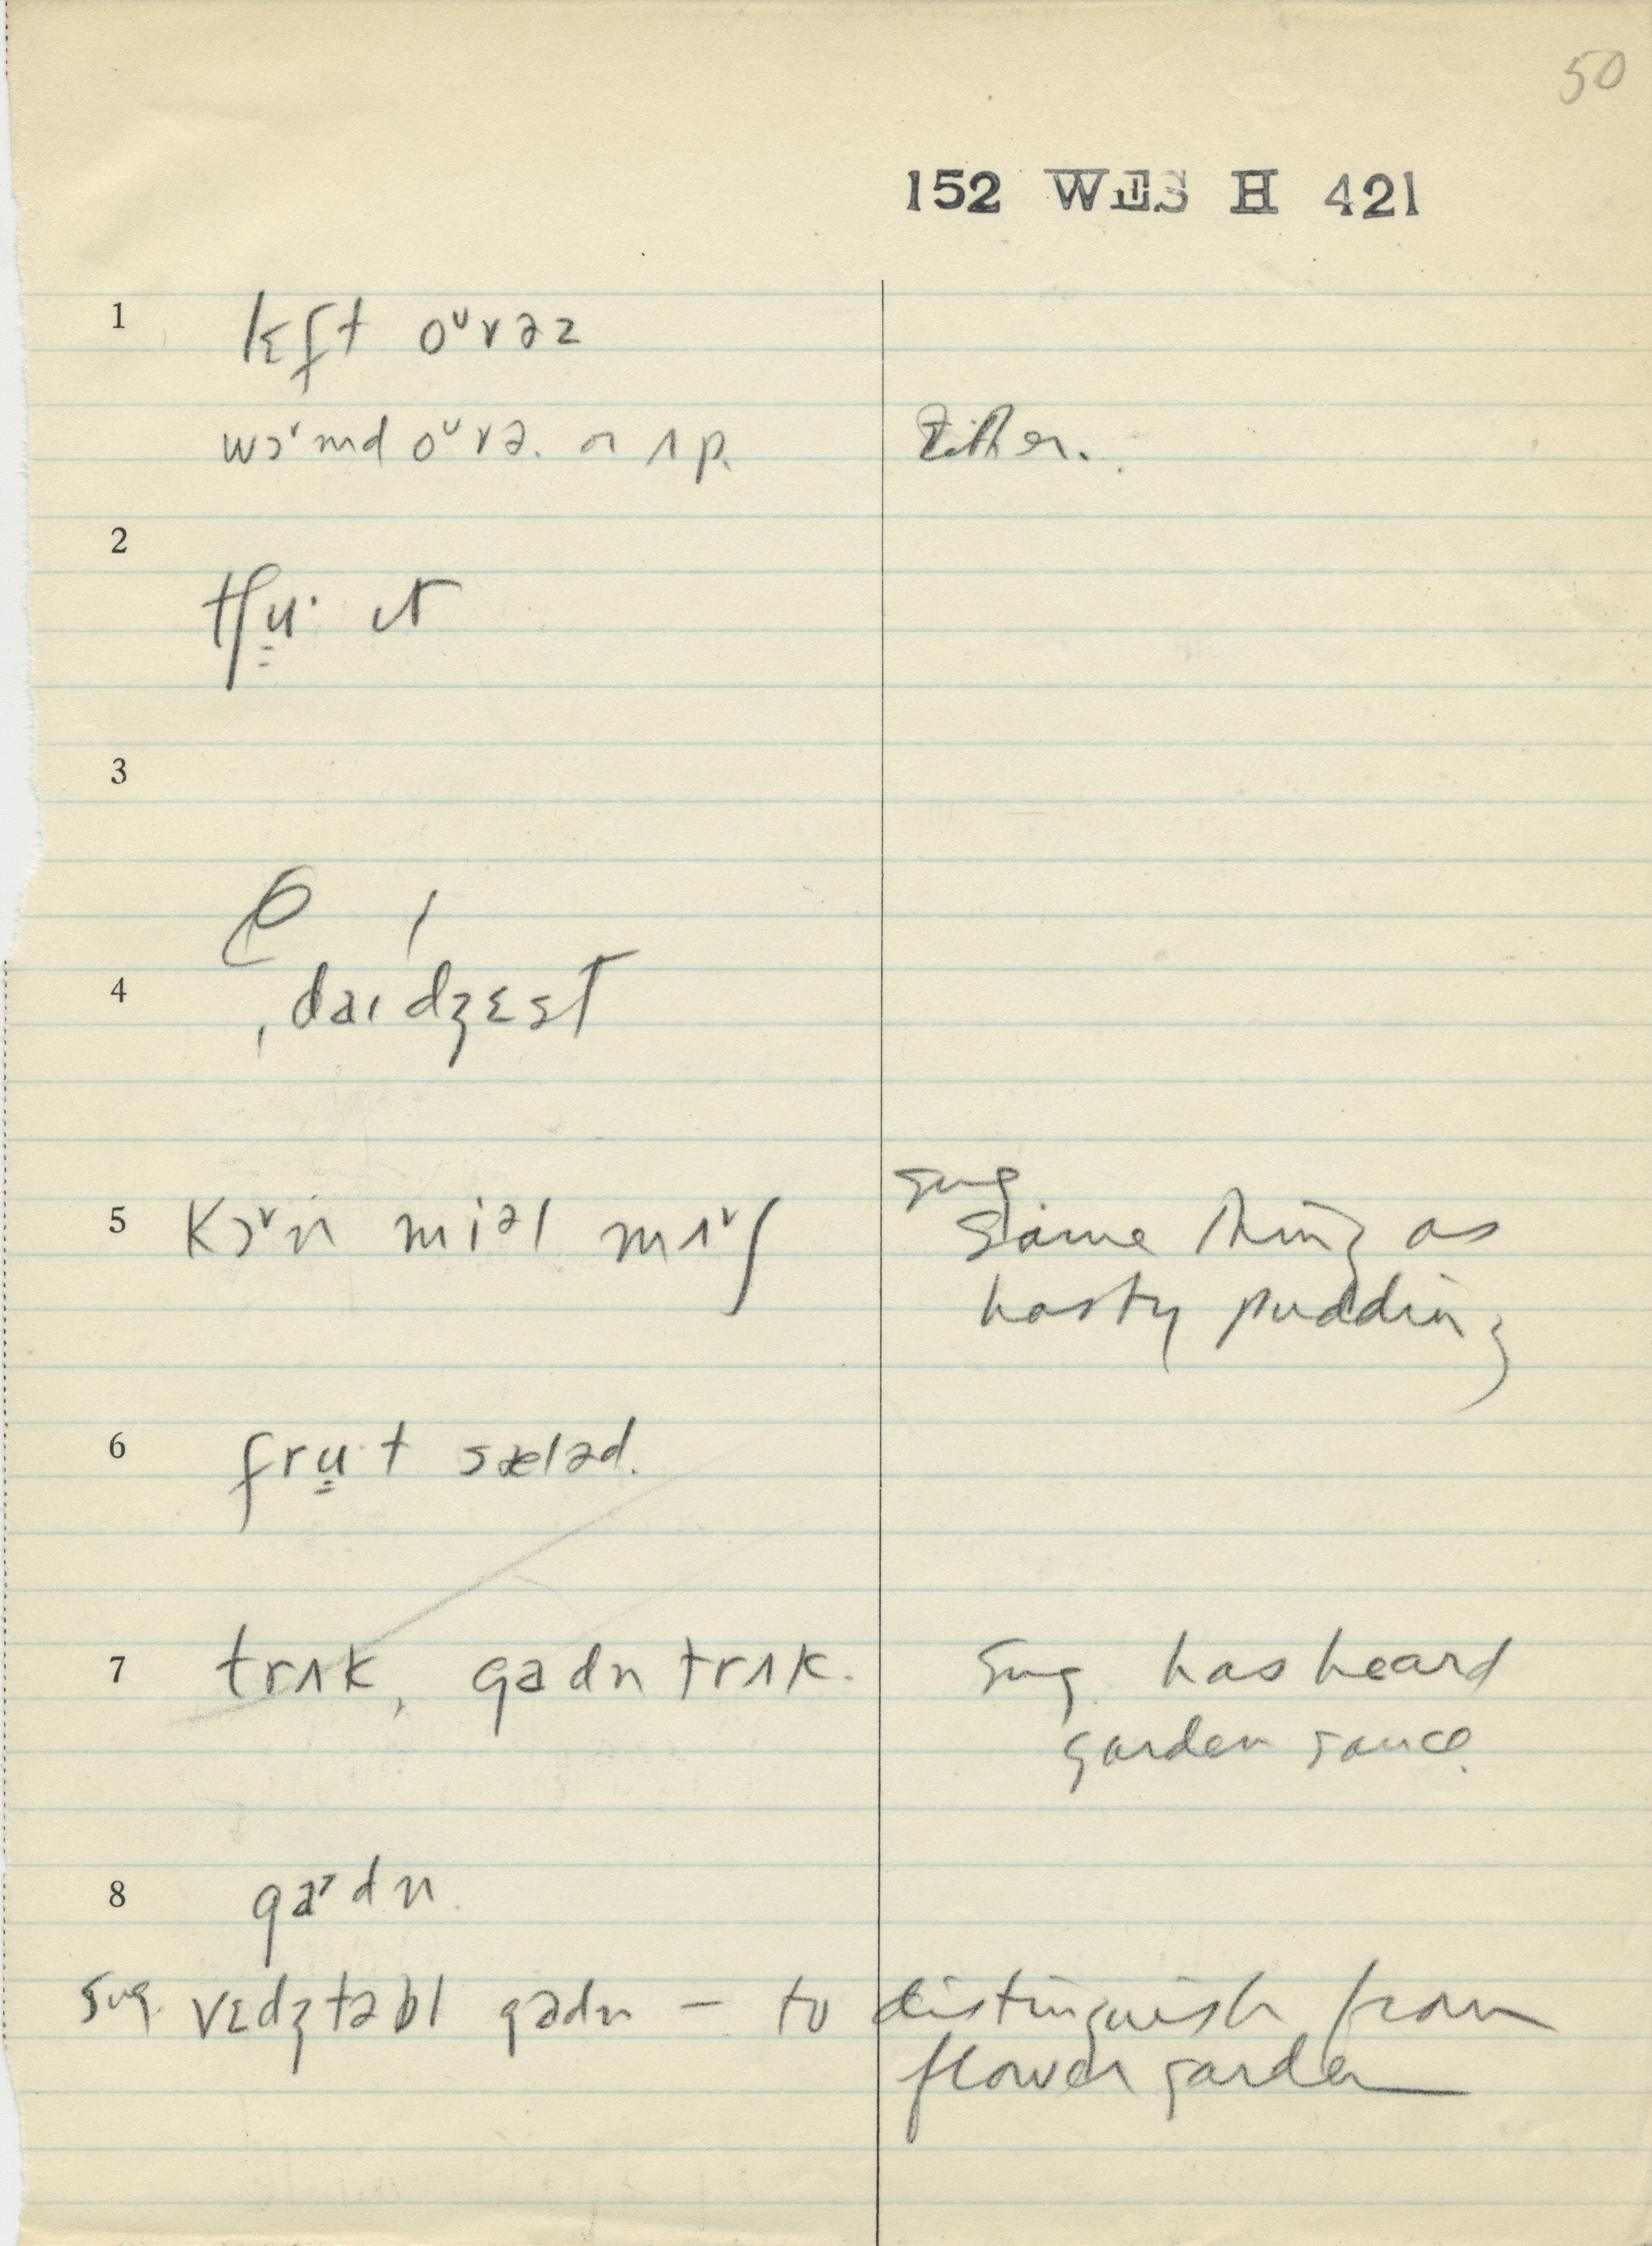 50
152 WES H 421
1 lɛft oᶷvəz
wɔʳmd oᶷvə. or ʌp. Either.
2
tʃu̳· ɪt
3
4 ˌdaɪdʒɛst
5 kɔᵛn miᵊl mʌᵛʃ sug. same thing as
hasty pudding
6 fru̳·t sæləd.
7 trʌk, gadn trʌk. sug. has heard
garden sauce.
8 gaʳdn.
sug. vɛdʒtəbl gadn – to distinguish from
flower garden